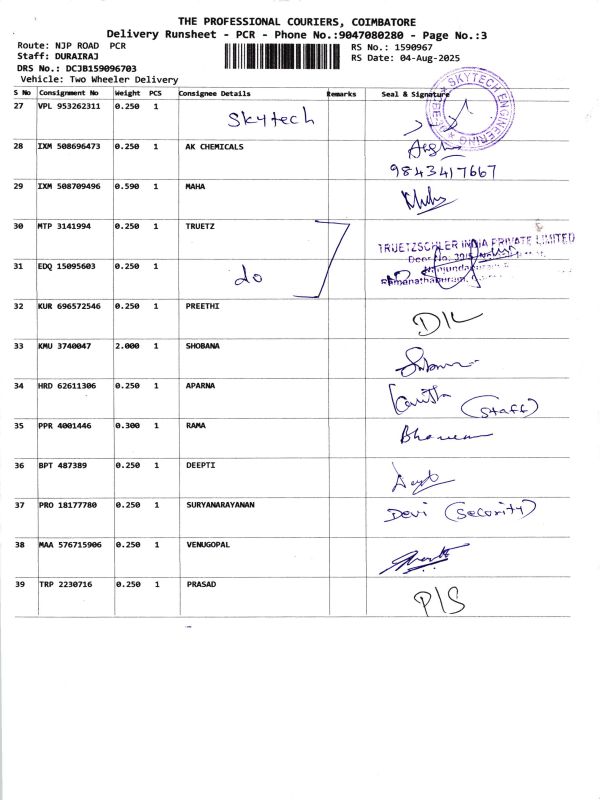 THE PROFESSIONAL COURIERS, COIMBATORE
Delivery Runsheet - PCR - Phone No.:9047080280 - Page No.:3
Route: NJP ROAD PCR RS No.: 1590967
Staff: DURAIRAJ RS Date: 04-Aug-2025
DRS No.: DCJB159096703
Vehicle: Two Wheeler Delivery
S No Consignment No Weight PCS Consignee Details Remarks Seal & Signature
27 VPL 953262311 0.250 1 Skytech SKYTECH ENGINEERING
28 IXM 508696473 0.250 1 AK CHEMICALS
9843417667
29 IXM 508709496 0.590 1 MAHA
30 MTP 3141994 0.250 1 TRUETZ
TRUETZSCHLER INDIA PRIVATE LIMITED
31 EDQ 15095603 0.250 1 do
Ramanathapuram,
32 KUR 696572546 0.250 1 PREETHI
33 KMU 3740047 2.000 1 SHOBANA
34 HRD 62611306 0.250 1 APARNA (Staff)
35 PPR 4001446 0.300 1 RAMA
36 BPT 487389 0.250 1 DEEPTI
37 PRO 18177780 0.250 1 SURYANARAYANAN Devi (Security)
38 MAA 576715906 0.250 1 VENUGOPAL
39 TRP 2230716 0.250 1 PRASAD P/S